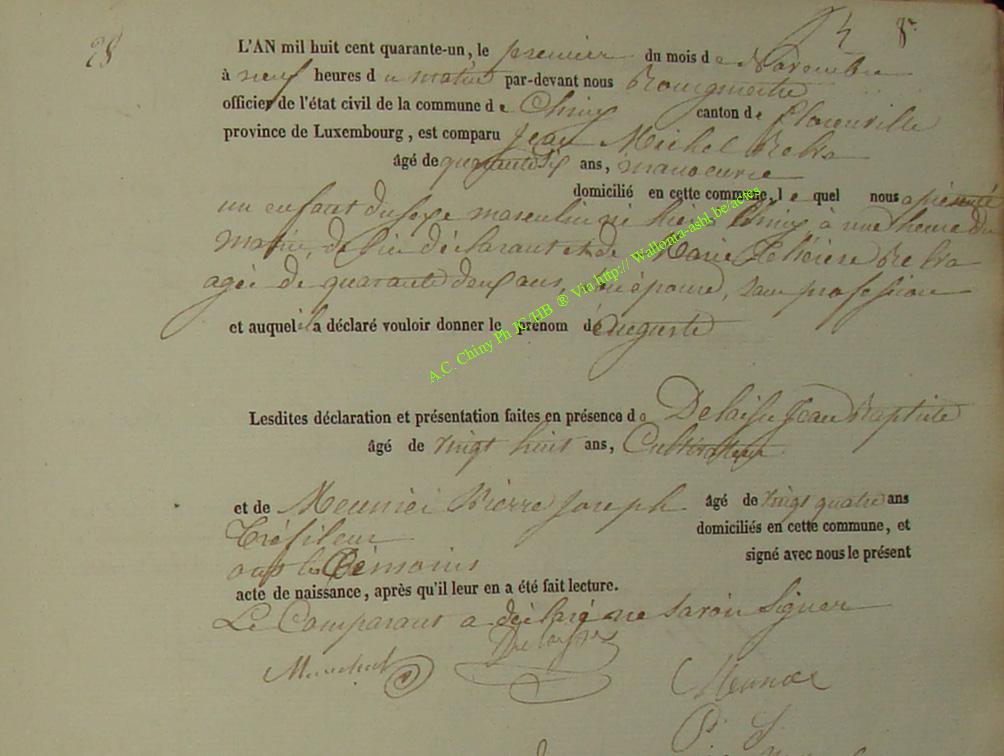 28
L'AN mil huit cent quarante-un, le premier du mois de Novembre
à neuf heures du matin par-devant nous Bourgmestre
officier de l'état civil de la commune de Chiny canton de florenville
province de Luxembourg, est comparu Jean Michel
âgé de quarante six ans, manoeuvre
domicilié en cette commune, le quel nous a présenté
un enfant du sexe masculin né hier à Chiny, à une heure du
matin, de lui déclarant et de Marie Thérèse
agée de quarante deux ans, son épouse, sans profession
et auquel il a déclaré vouloir donner le prénom d'auguste
Lesdites déclaration et présentation faites en présence de Jean Baptiste
âgé de vingt huit ans, Cultivateur
et de Meunier Pierre Joseph âgé de vingt quatre ans
Tréfileur domiciliés en cette commune, et
ont les témoins signé avec nous le présent
acte de naissance, après qu'il leur en a été fait lecture.
Le Comparant a déclaré ne savoir Signer
Meunier
P. J.
A.C. Chiny Ph JC/HB ® Via http:// Wallonia-asbl.be/actes